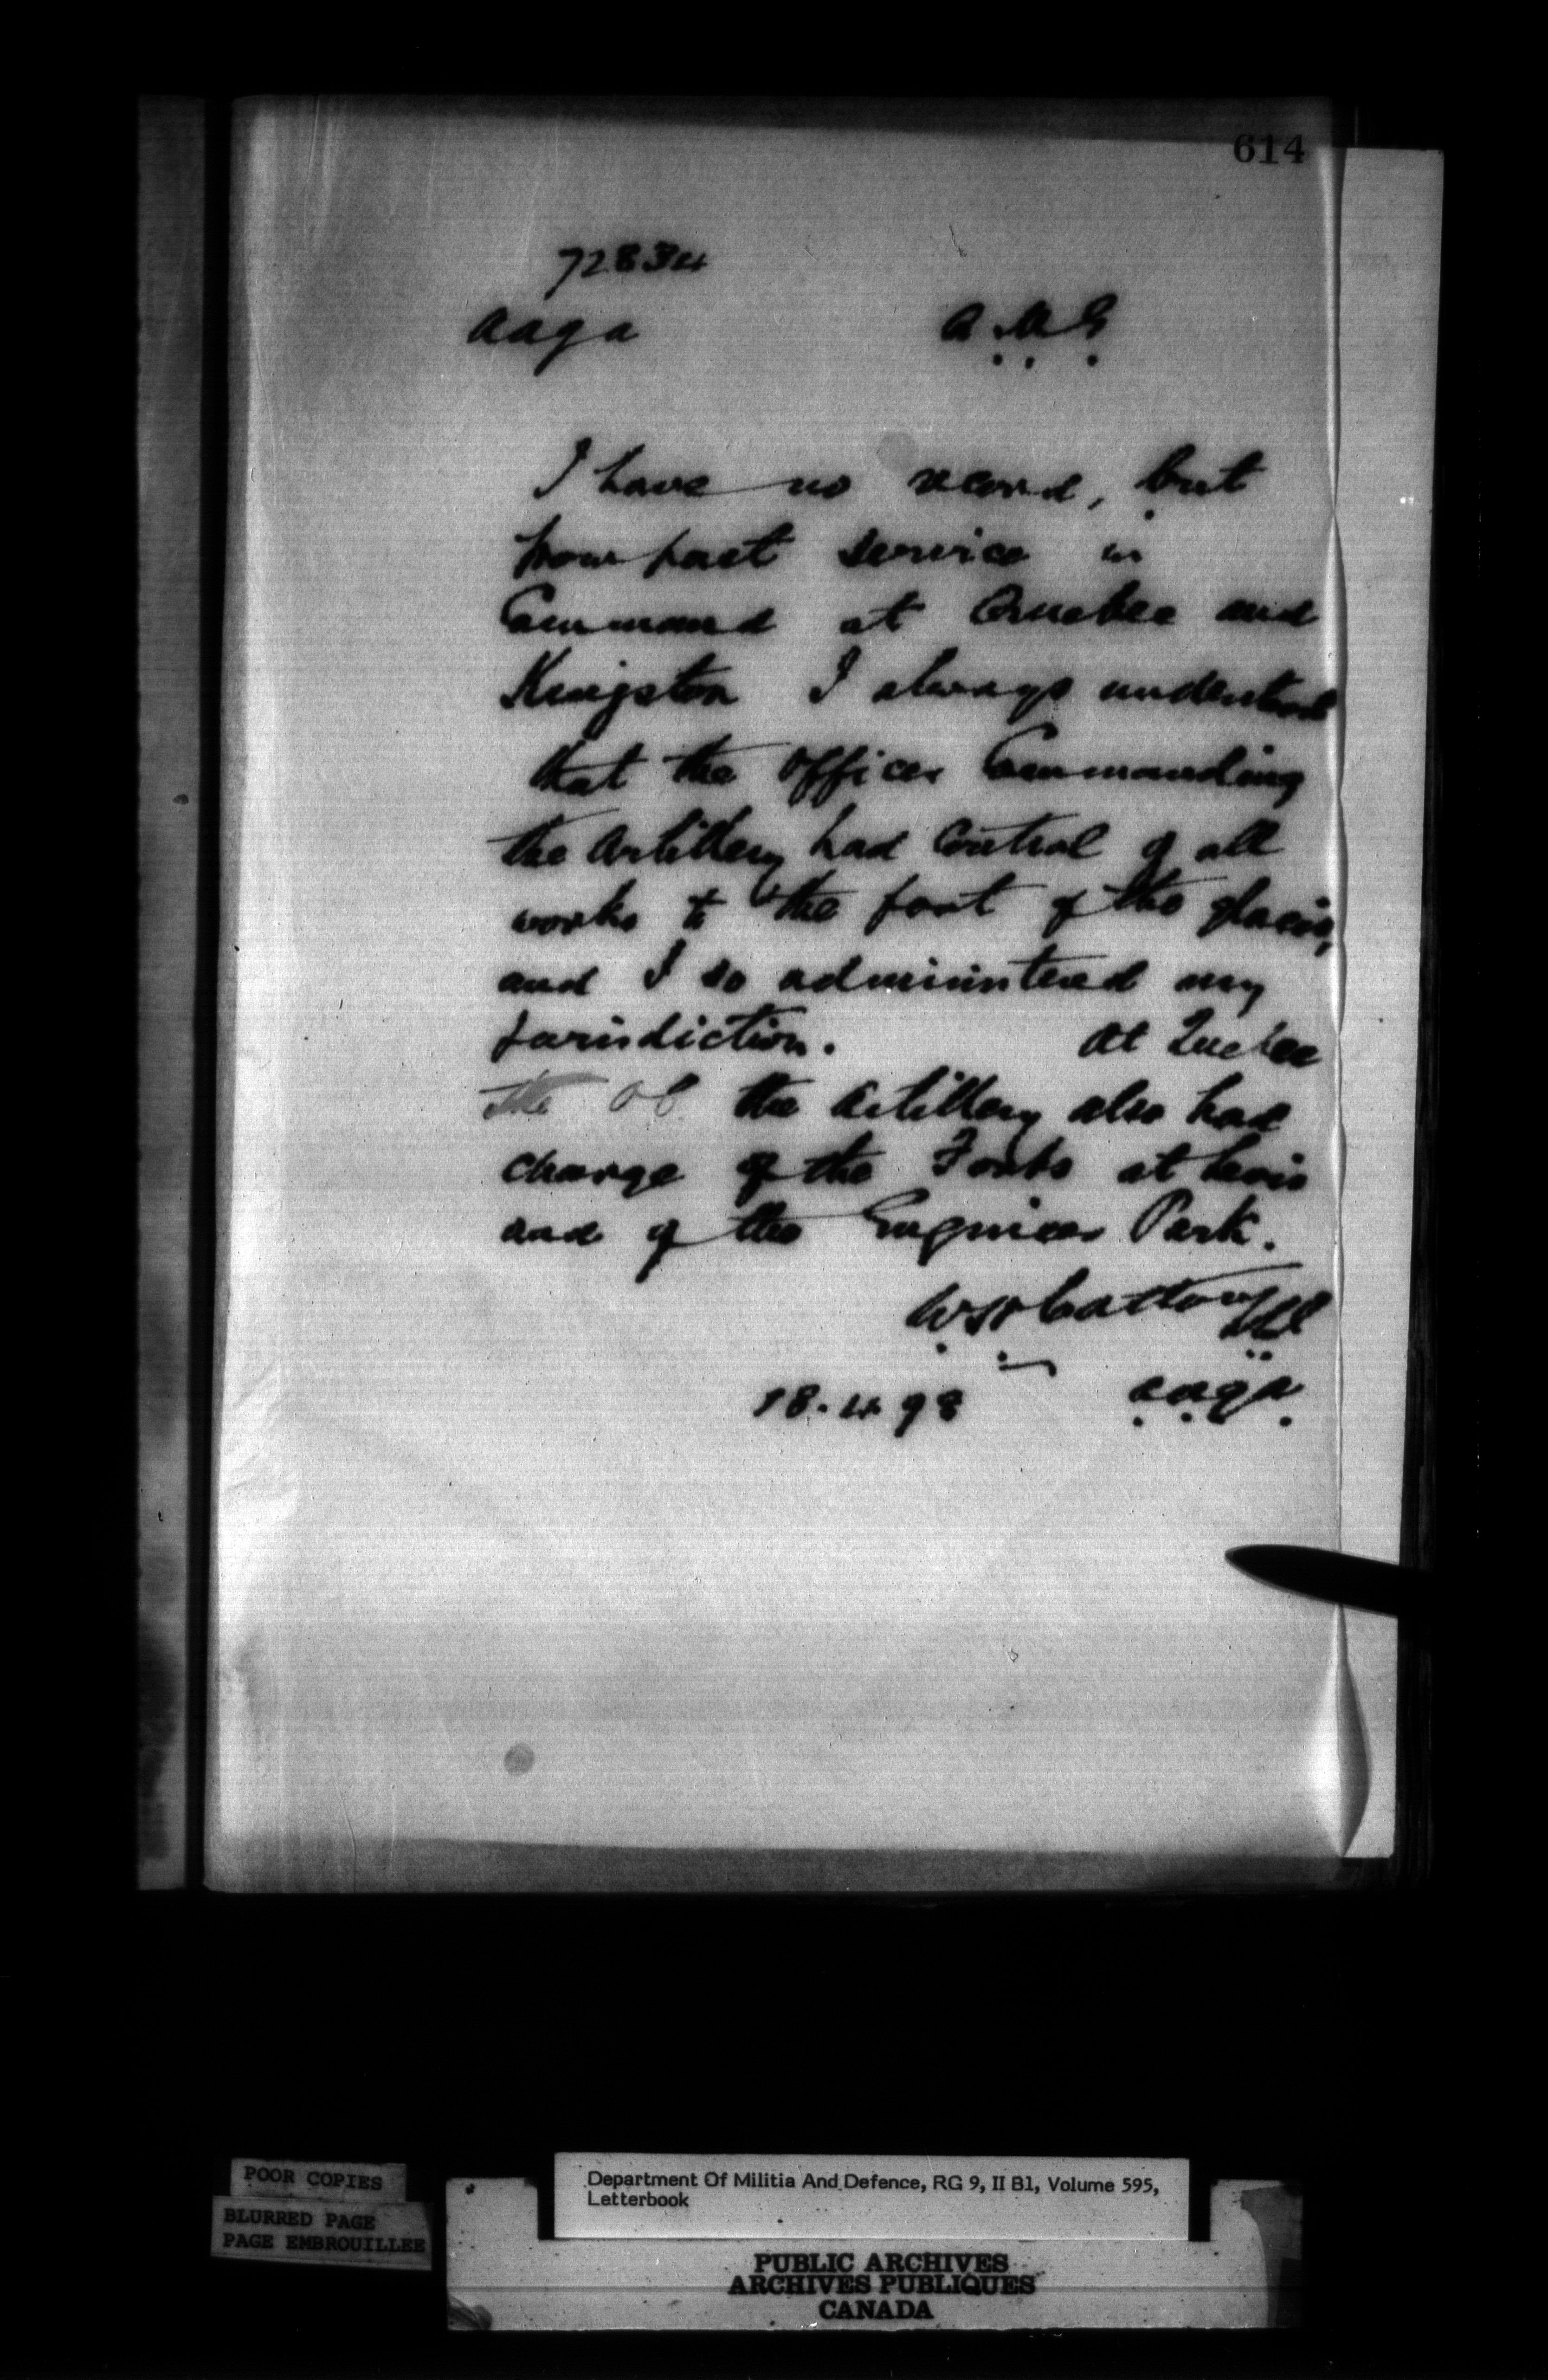 614
72834
aaga
I have no record, but
from past service in
Command at Quebec and
Kingston I always understood
that the Officer Commanding
the Artillery had Control of all
works to the foot of the glacis,
and I so administered my
jurisdiction. At Quebec
the OC the Artillery also had
charge of the Forts at Levis
and of the Engineer Park.
18.4.98 a.a.g.a.
POOR COPIES
BLURRED PAGE
PAGE EMBROUILLEE
Department Of Militia And Defence, RG 9, II B1, Volume 595,
Letterbook
PUBLIC ARCHIVES
ARCHIVES PUBLIQUES
CANADA